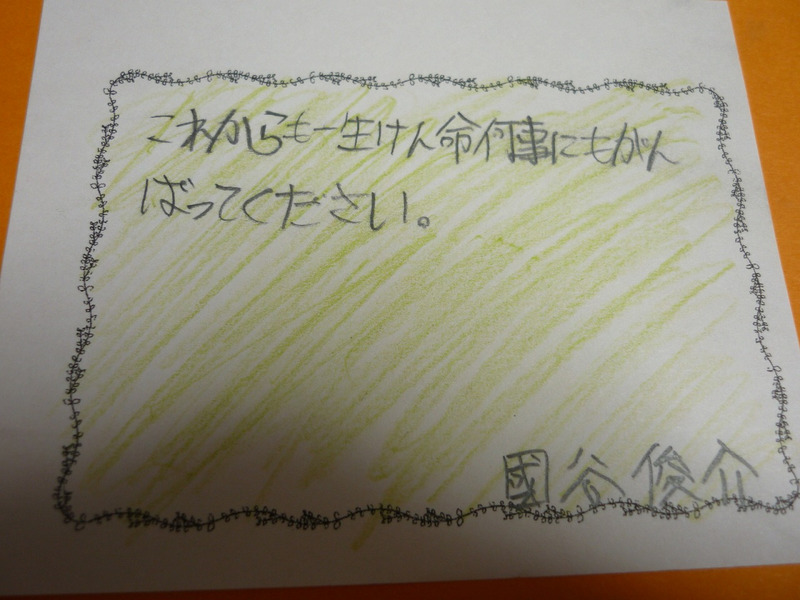 これからも一生けん命何事にもがん
ばってください。
國谷俊介